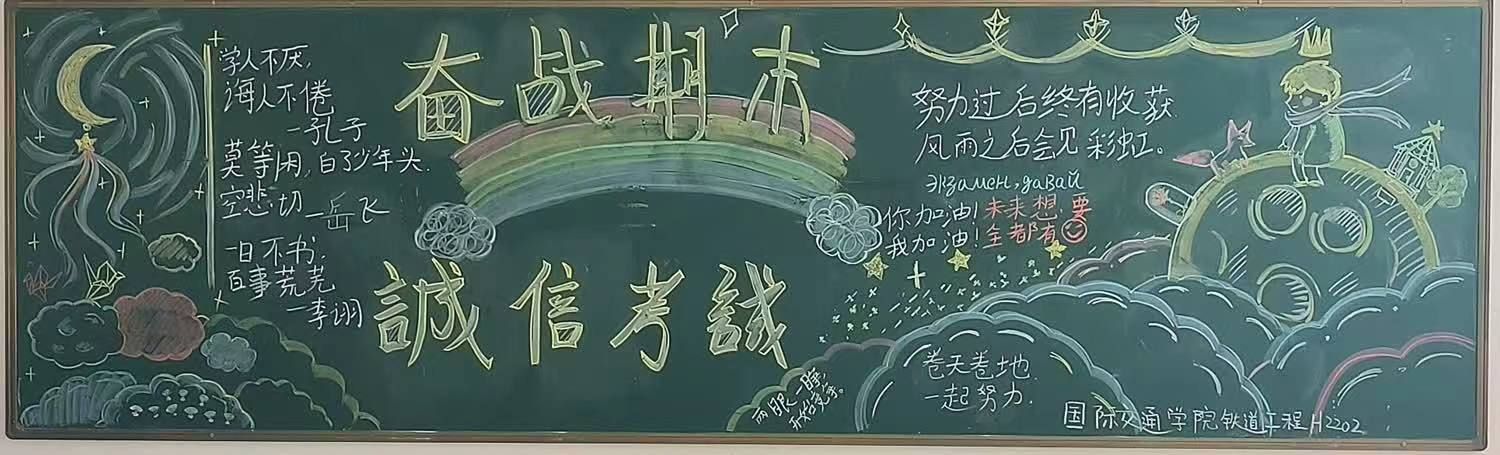 学人不厌,
诲人不倦
—孔子
莫等闲,白了少年头.
空悲切 —岳飞
一日不书,
百事荒芜
—李诩
奋战期末
誠信考試
努力过后终有收获
风雨之后会见彩虹。
экзамен, давай
你加油!未来想要
我加油!全都有
两眼一睁,
开始竞争。
卷天卷地.
一起努力.
国际交通学院铁道工程H2202